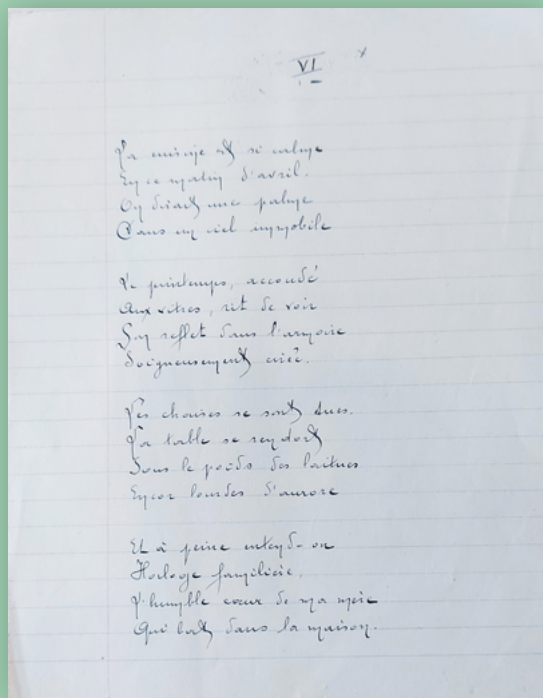 VI
La cuisine est si calme
En ce matin d'avril.
On dirait une palme
Dans un ciel immobile
Le printemps, accoudé
Aux vitres, rit de voir
Son reflet dans l'armoire
Soigneusement cirée.
Les chaises se sont tues.
La table se rendort
Sous le poids des laitues
Encor lourdes d'aurore
Et à peine entend-on
Horloge familière,
L'humble cœur de ma mère
Qui bat dans la maison.